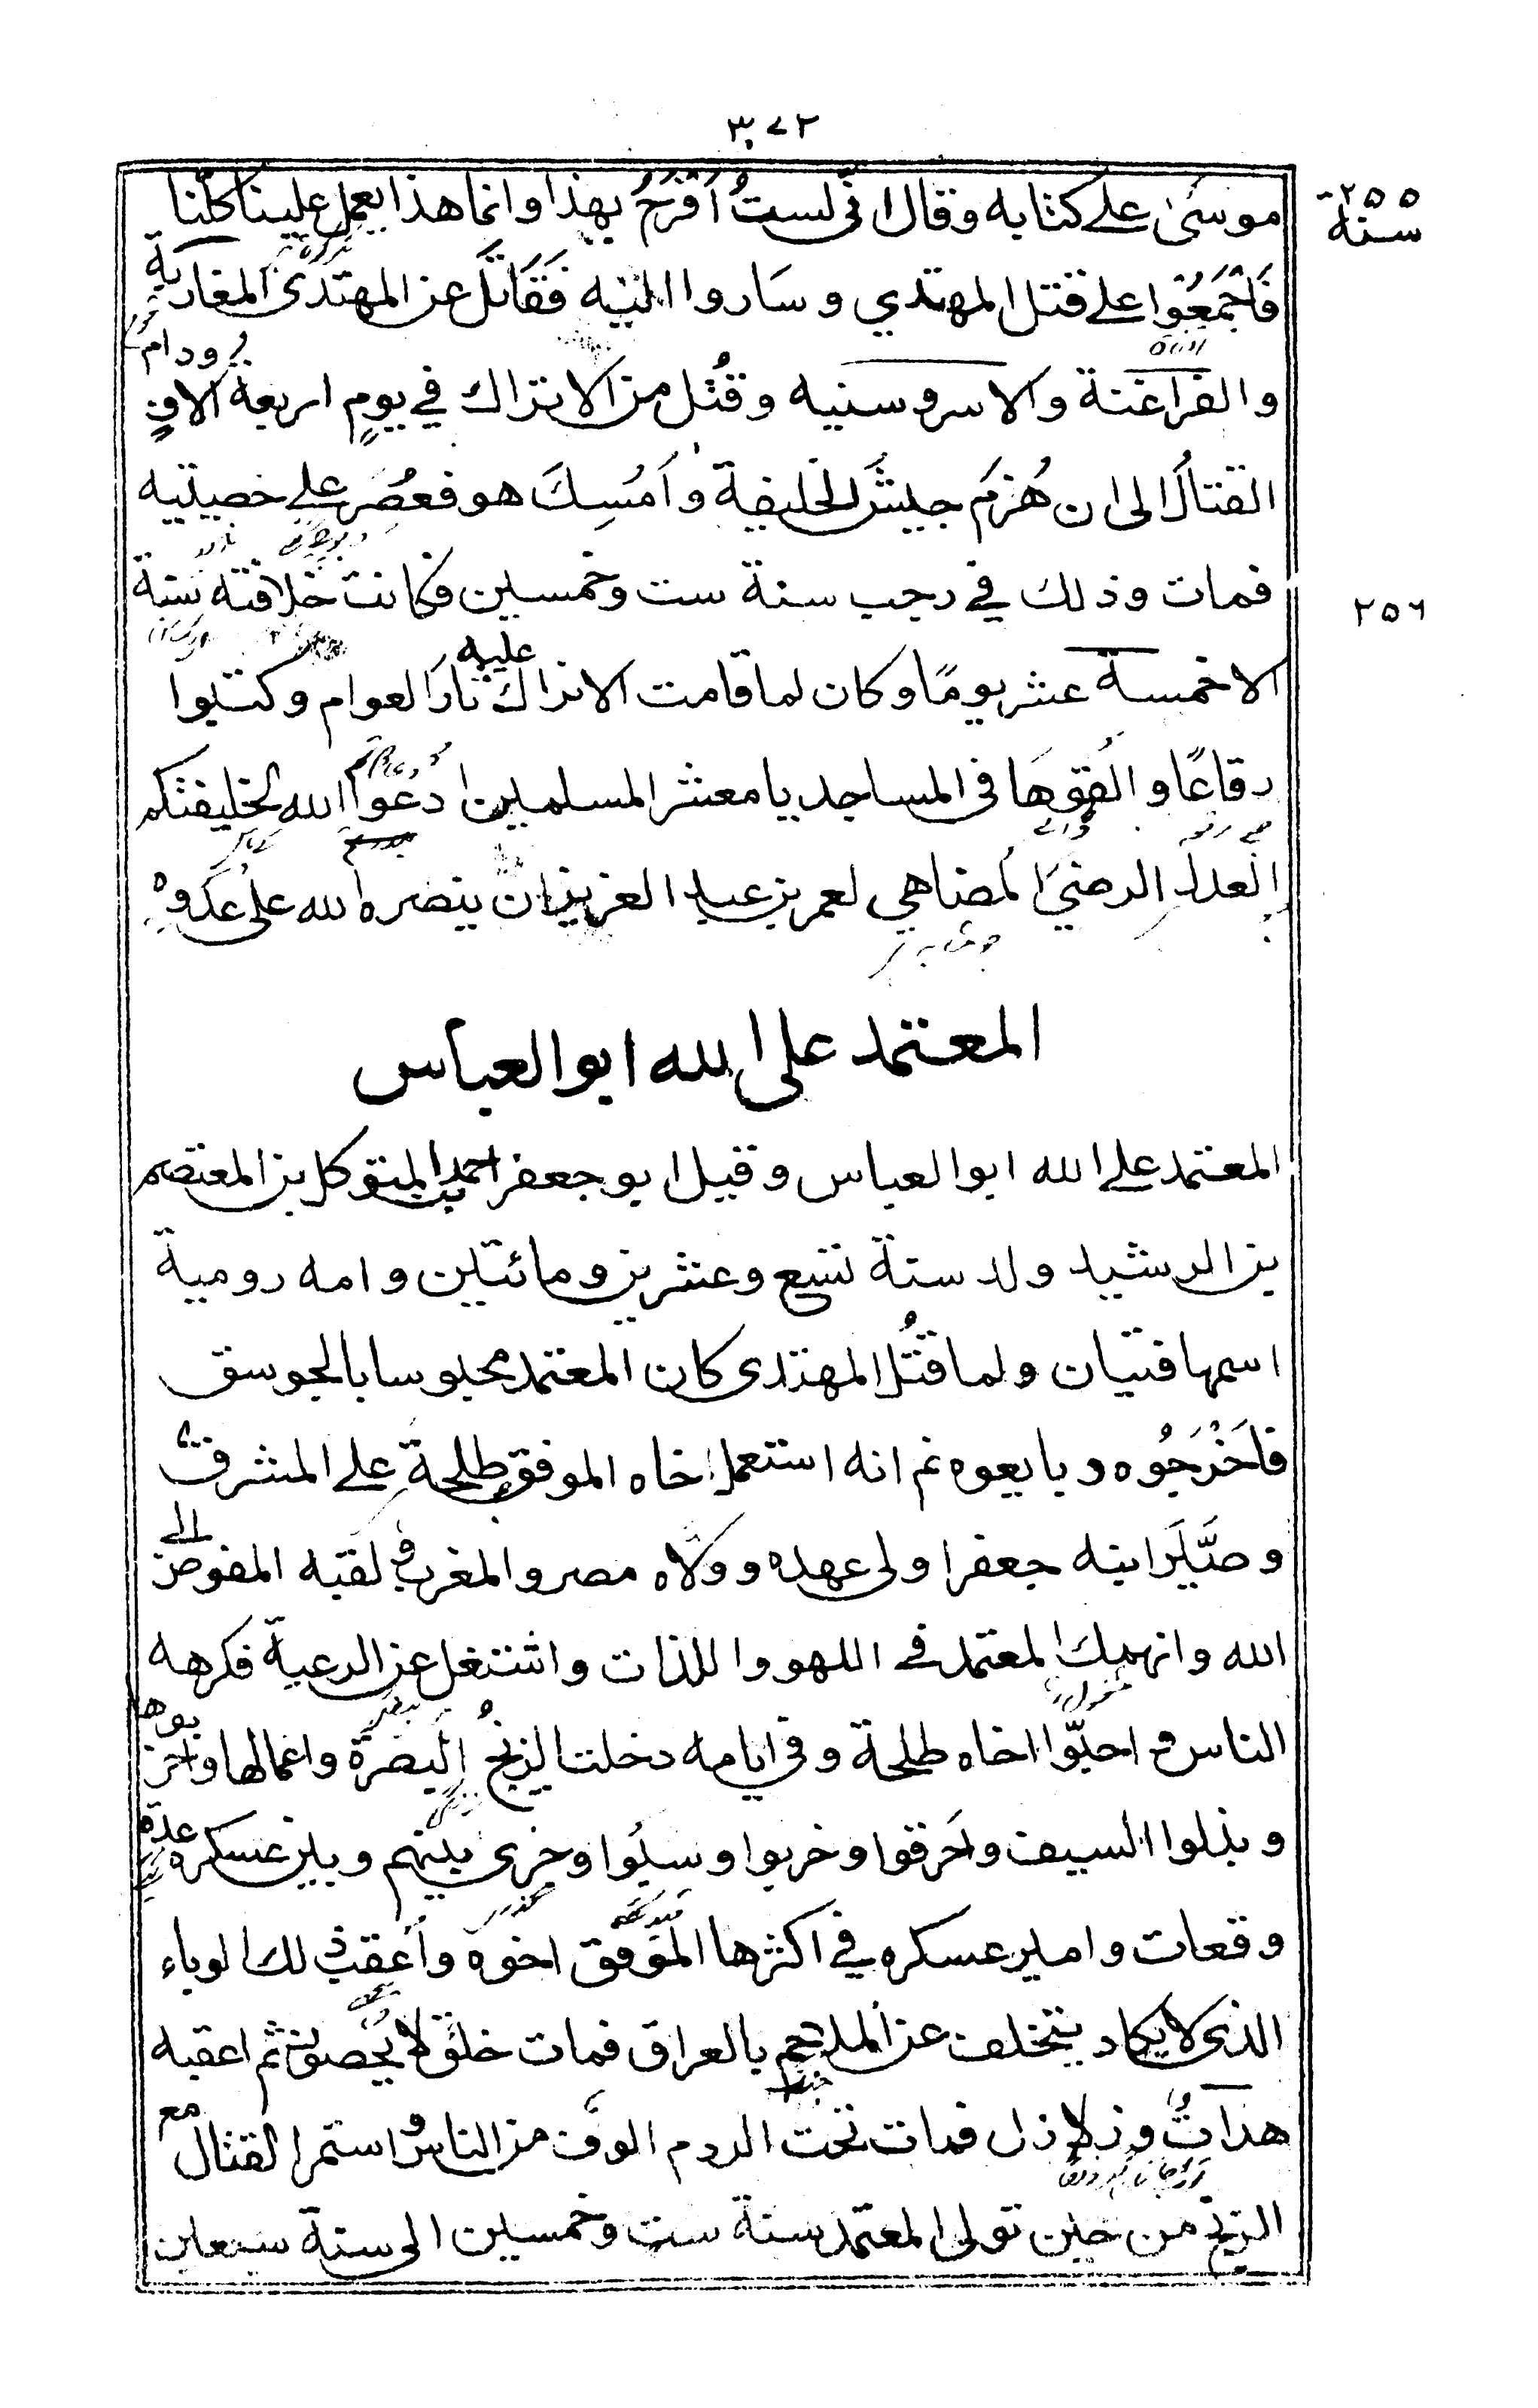 ٣٧٢
سنة ٢٥٥
موسى على كتابه وقال انّي لستُ اَفْرَحُ بهذا وانما هذا يعمل علينا كلّنا
فَاَجْمَعُوا على قتل المهتدي وسَاروا اليه فَقَاتَلَ عن المهتدى المغاربة
والفراغنة والاسروسنيه وقُتل من الاتراك في يومٍ اربعة الافٍ ودام
القتالُ الى ان هُزِم جيشُ الخليفة وَاُمْسِكَ هو فعُصِرَ على خصيتيه
فمات وذلك في رجب سنة ست وخمسين فكانت خلافته سنة
٢٥٦
الا خمسة عشر يومًا وكان لما قامت الاتراك عليه ثارَ العوام وكتبوا
رقاعًا والقوهَا فى المساجد يا معشر المسلمين ادعوا الله لخليفتكم
العدل الرضيَ المضاهي لعمر بن عبد العزيز ان ينصره الله على عدوه
المعتمد على الله ابو العباس
المعتمد على الله ابو العباس وقيل ابو جعفر احمد بن المتوكل بن المعتصم
بن الرشيد ولد سنة تسع وعشرين ومائتين وامه رومية
اسمها فتيان ولما قُتل المهتدى كان المعتمد محبوسا بالجوسق
فاَخْرَجُوه وبايعوه ثم انه استعمل اخاه الموفق طلحة على المشرق
وصَيَّر ابنه جعفرا ولى عهده وولّاه مصر والمغرب ولقبه المفوض الى
الله وانهمك المعتمد في اللهو واللذات واشتغل عن الرعية فكرهه
الناس و احبّوا اخاه طلحة وفي ايامه دخلت الزنجُ البَصرة واعمالها واخربوها
وبذلوا السيف واَحرقوا وخربوا وسبُوا وجرى بينهم وبين عسكره عدة
وقعات وامير عسكره في اكثرها الموفق اخوه وَاَعقب ذلك الوباء
الذى لا يكاد يتخلف عن الملاحم بالعراق فمات خلق لا يُحصون ثم اعقبه
هداتٌ وزلازل فمات تحت الردم الوف من الناس واستمر القتال مع
الزنج من حين تولى المعتمد سنة ست وخمسين الى سنة سبعين